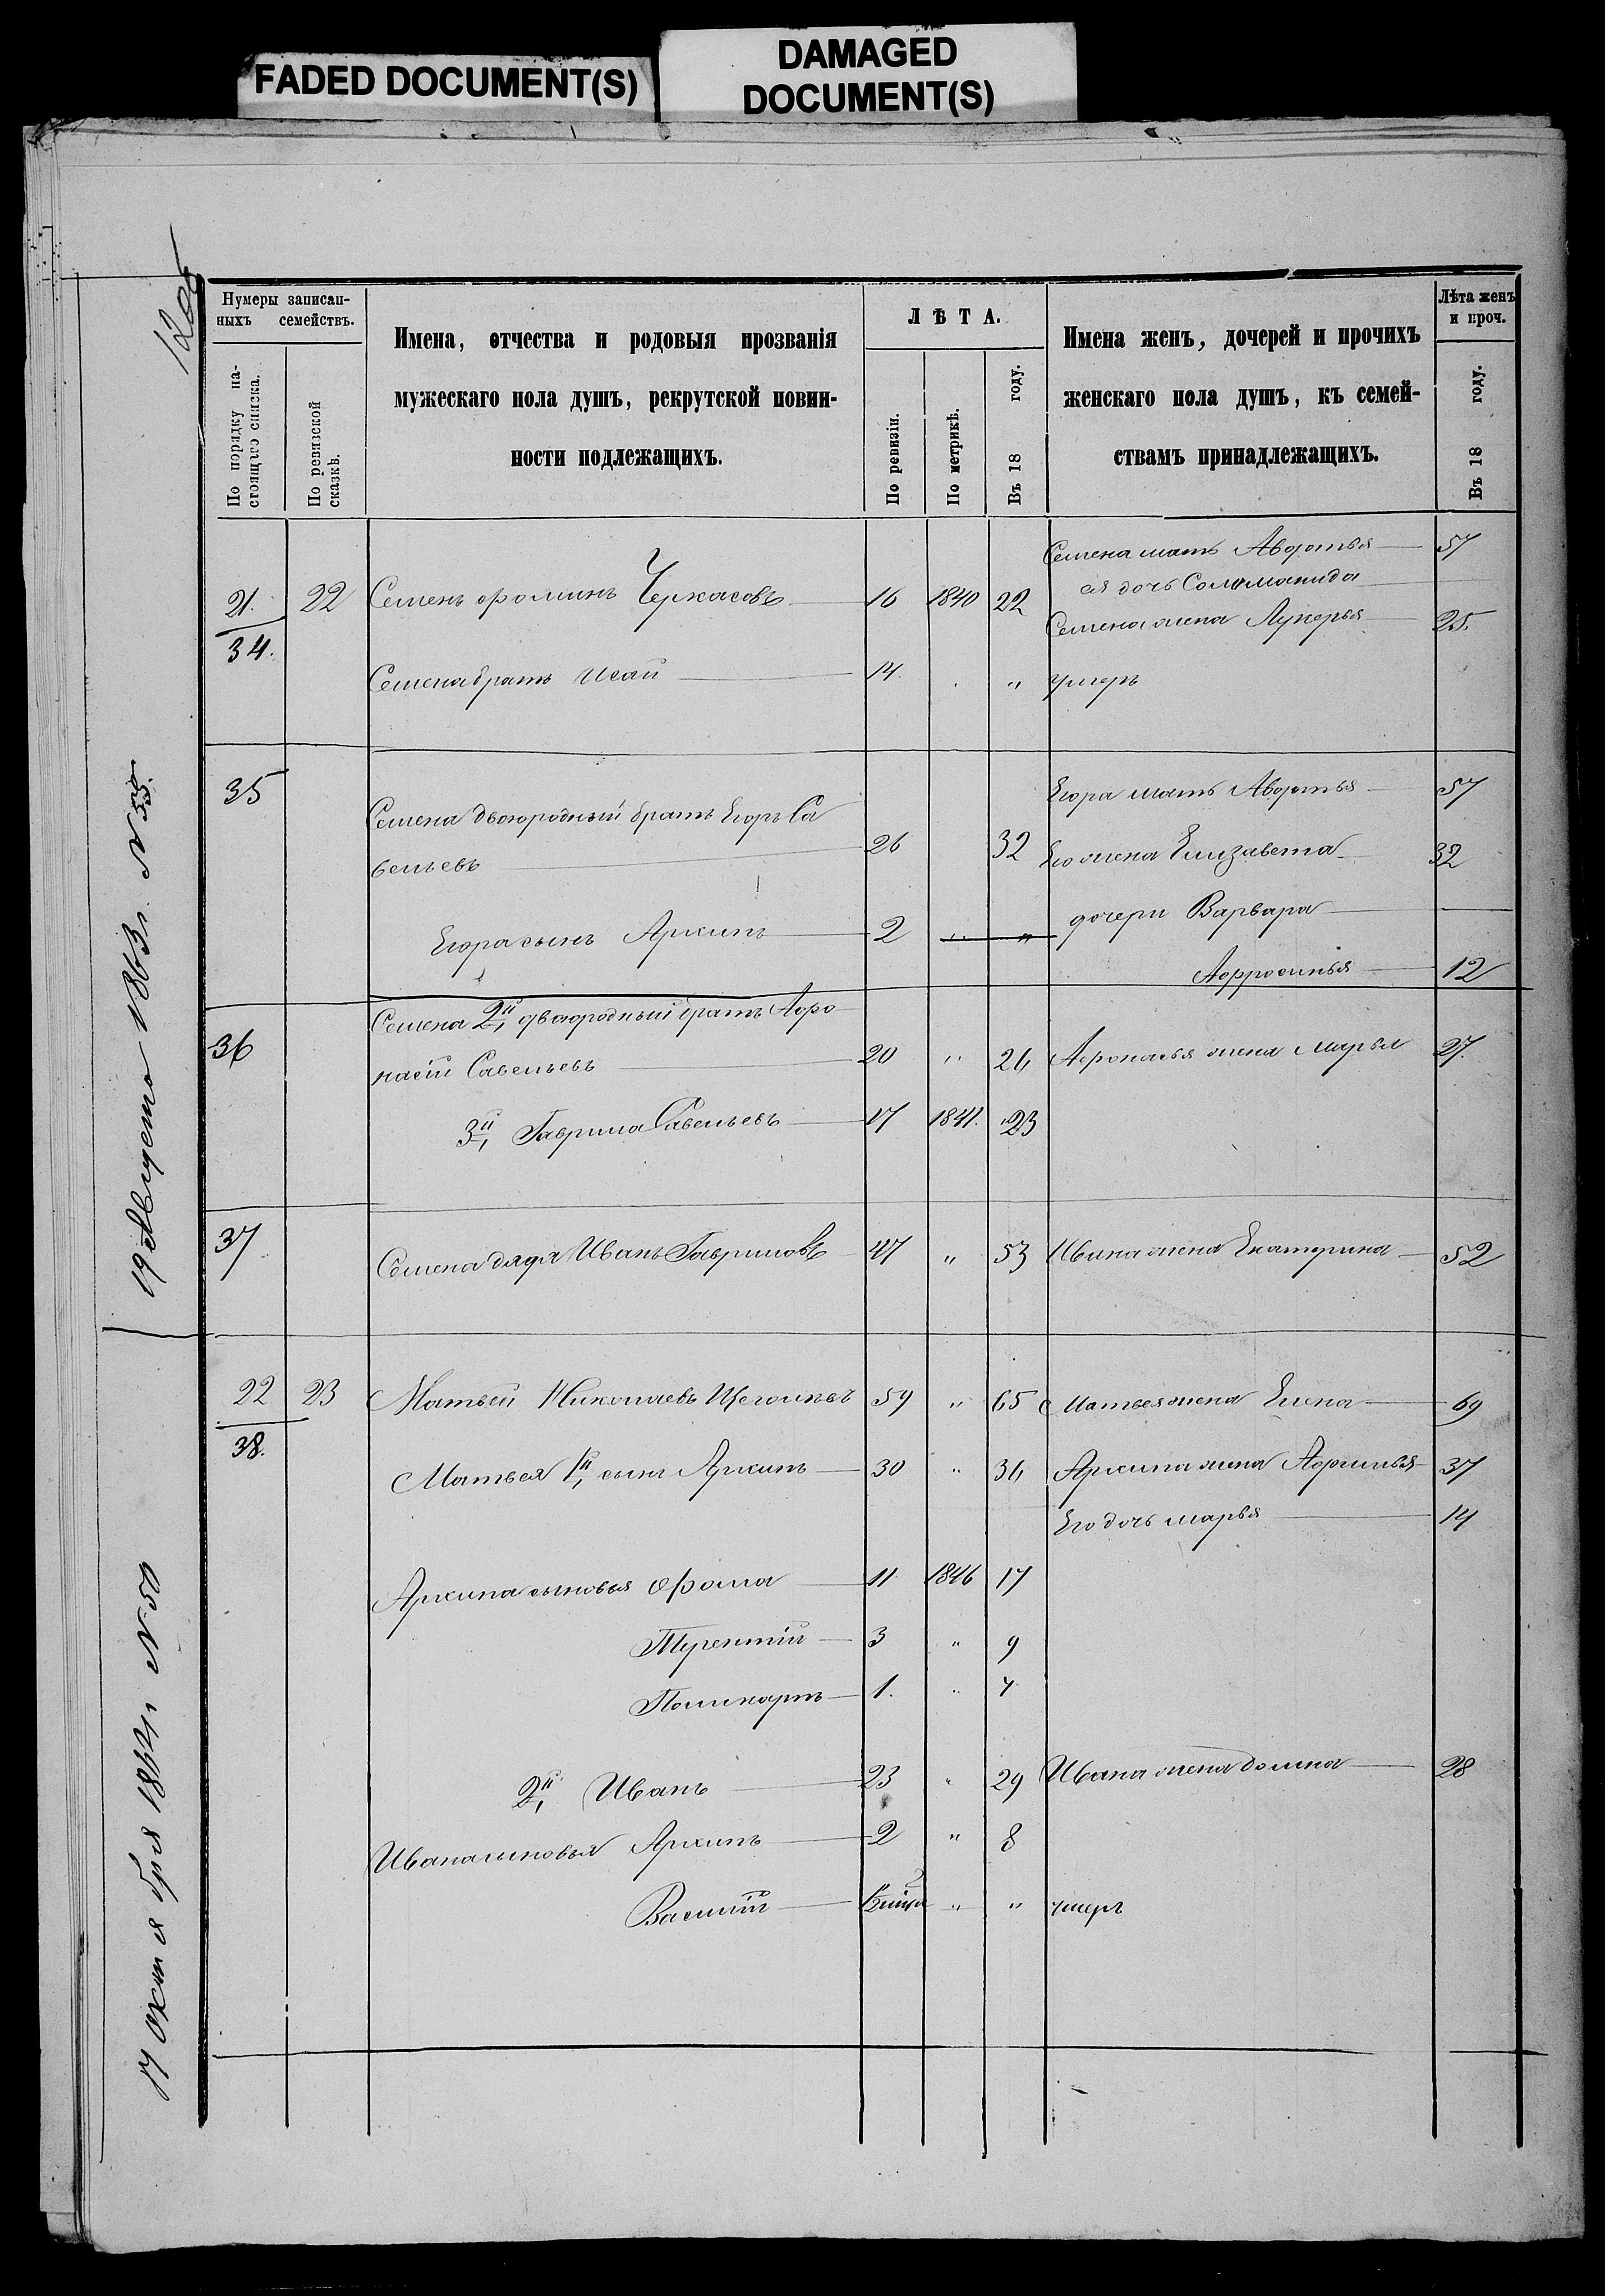 FADED DOCUMENT(S)
DAMAGED
DOCUMENT(S)
Нумеры записан-
ныхъ семействъ.
По порядку на-
стоящаго списка.
По ревизской
сказкѣ.
Имена, отчества и родовыя прозванія
мужескаго пола душъ, рекрутской повин-
ности подлежащихъ.
ЛѢТА.
По ревизіи.
По метрикѣ.
Въ 18 году.
Имена женъ, дочерей и прочихъ
женскаго пола душъ, къ семей-
ствамъ принадлежащихъ.
Лѣта женъ
и проч.
Въ 18 году.
Семена мать Авдотья 57
ея дочь Соломанида
21. 22 Семенъ Фоминъ Черкасовъ 16 1840 22
Семена жена Лукерья 25.
34.
Семена братъ Исай 14. " умеръ
35 Егора мать Авдотья 57
Семена двоюродный братъ Егоръ Са
вельевъ 26 32 Его жена Елизавета 32
дочери Варвара
Егора сынъ Архипъ 2 " "
Афросинья 12
Семена 2й двоюродный братъ Афо
36 насій Савельевъ 20 " 26 Афонасья жена Марья 27.
3й Гаврила Савельевъ 17 1841. 23
37 Семена дядя Иванъ Гавриловъ 47 " 53 Ивана жена Екатерина 52
22 23 Матвей Николаевъ 59 " 65 Матвея жена Елена 69
38.
Матвея 1й сынъ Архипъ 30 " 36 Архипа жена 37
Его дочь Марья 14
Архипа сыновья Фома 11 1846 17
Терентій 3 " 9
Поликарпъ 1. " 7
2й Иванъ 23 " 29 Ивана жена Домна 28
Ивана сыновья Архипъ 2 " 8
Василій " " умеръ
19 Августа 1863 г. № 55.
17 Октября 1862 г. № 50